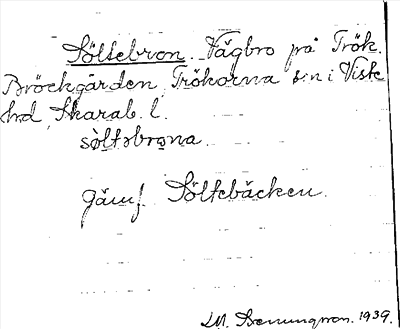 Söltebron. Vägbro på Trök.
Bröckgården, Trökorna sn i Viste
hd, Skarab. l.
sòltəbrona.
Jämf Söltebäcken.
1939.